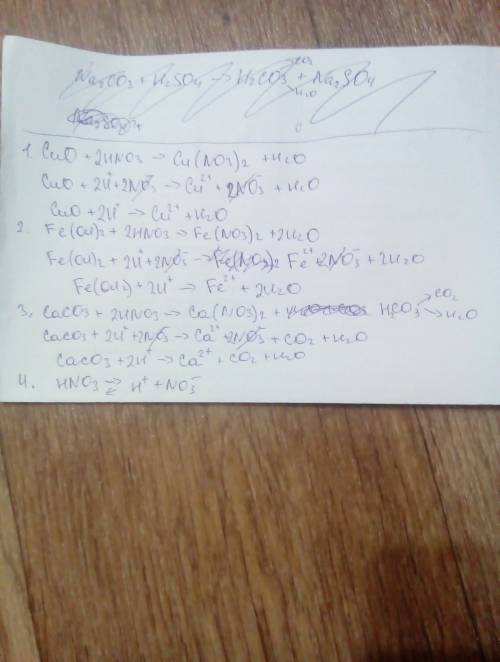 Na2CO3 + H2SO4 → H2CO3 + Na2SO4
CO2
H2O
1. CuO + 2HNO3 → Cu(NO3)2 + H2O
CuO + 2H⁺ + 2NO3⁻ → Cu²⁺ + 2NO3⁻ + H2O
CuO + 2H⁺ → Cu²⁺ + H2O
2. Fe(OH)2 + 2HNO3 → Fe(NO3)2 + 2H2O
Fe(OH)2 + 2H⁺ + 2NO3⁻ → Fe(NO3)2 Fe²⁺ 2NO3⁻ + 2H2O
Fe(OH)2 + 2H⁺ → Fe²⁺ + 2H2O
3. CaCO3 + 2HNO3 → Ca(NO3)2 + H2CO3 → CO2 → H2O
CaCO3 + 2H⁺ + 2NO3⁻ → Ca²⁺ 2NO3⁻ + CO2 + H2O
CaCO3 + 2H⁺ → Ca²⁺ + CO2 + H2O
4. HNO3 ⇄ H⁺ + NO3⁻